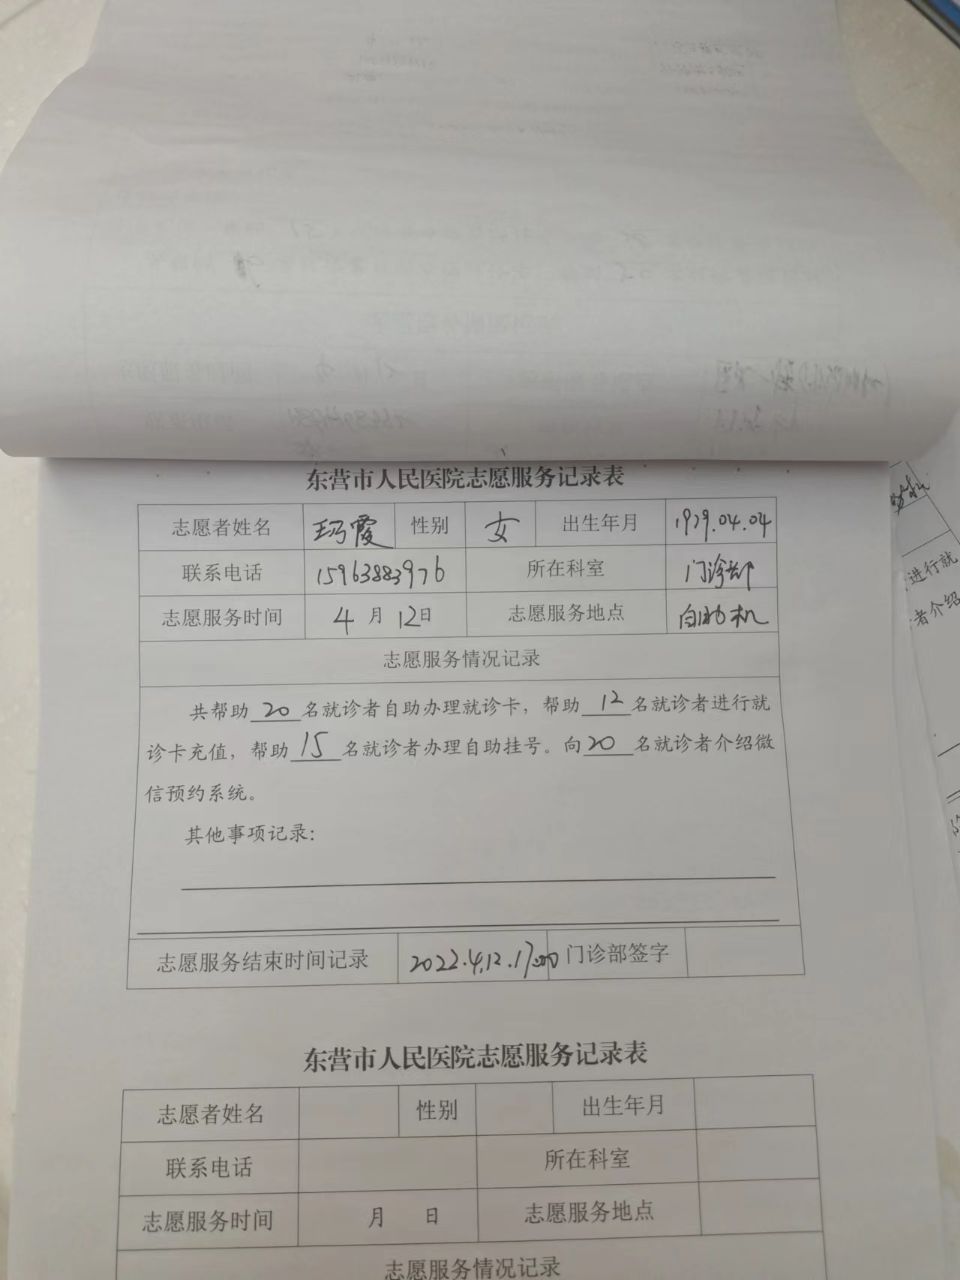 东营市人民医院志愿服务记录表
志愿者姓名 王巧霞 性别 女 出生年月 1979.04.04
联系电话 15963883976 所在科室 门诊部
志愿服务时间 4 月 12日 志愿服务地点 自助机
志愿服务情况记录
共帮助 20 名就诊者自助办理就诊卡，帮助 12 名就诊者进行就
诊卡充值，帮助 15 名就诊者办理自助挂号。向 20 名就诊者介绍微
信预约系统。
其他事项记录：
志愿服务结束时间记录 2022.4.12.17:00 门诊部签字
东营市人民医院志愿服务记录表
志愿者姓名 性别 出生年月
联系电话 所在科室
志愿服务时间 月 日 志愿服务地点
志愿服务情况记录
进行就
者介绍